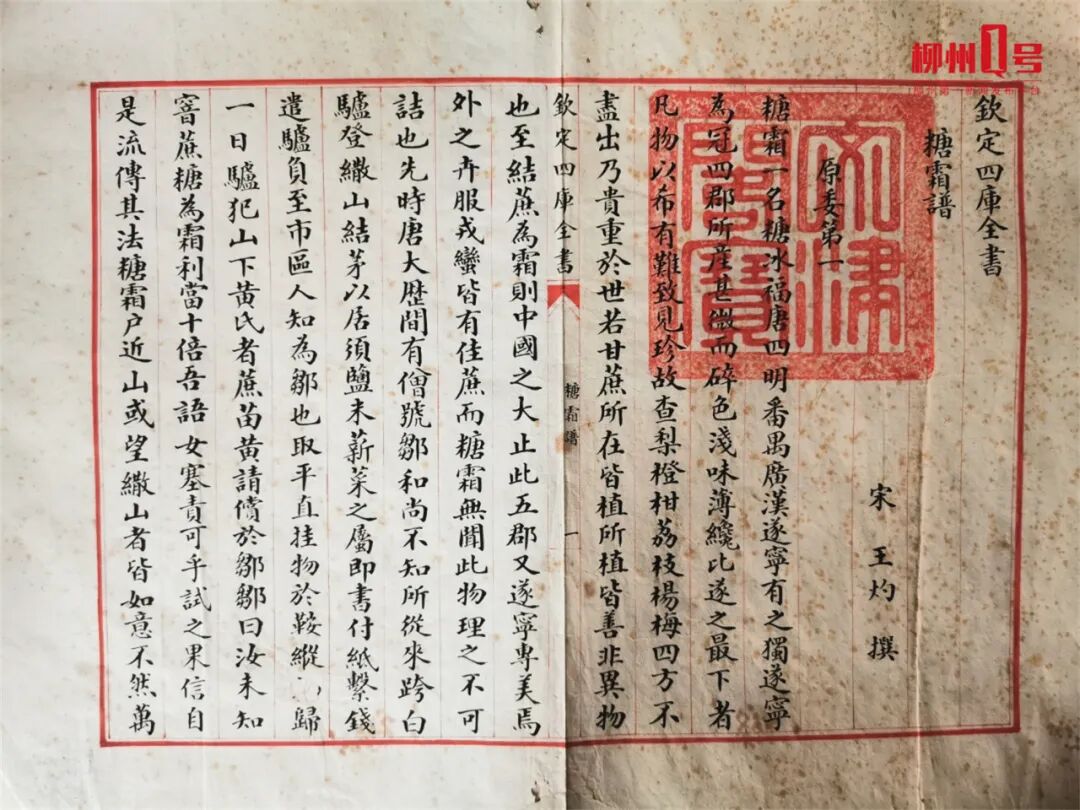 柳州Q号
欽定四庫全書
糖霜譜
宋 王灼 撰
原委第一
文津閣寶
糖霜一名糖冰福唐四明番禺廣漢遂寧有之獨遂寧
為冠四郡所産甚微而碎色淺味薄纔比遂之最下者
凡物以希有難致見珍故查梨橙柑荔枝楊梅四方不
盡出乃貴重於世若甘蔗所在皆植所植皆善非異物
欽定四庫全書 糖霜譜 一
也至結蔗為霜則中國之大止此五郡又遂寧專美焉
外之卉服戎蠻皆有佳蔗而糖霜無聞此物理之不可
詰也先時唐大歴間有僧號鄒和尚不知所從來跨白
驢登繖山結茅以居須鹽米薪菜之屬即書付紙繫錢
遣驢負至市區人知為鄒也取平直挂物於鞍縱歸
一日驢犯山下黄氏者蔗苗黄請償於鄒鄒曰汝未知
窨蔗糖為霜利當十倍吾語女塞責可乎試之果信自
是流傳其法糖霜户近山或望繖山者皆如意不然萬